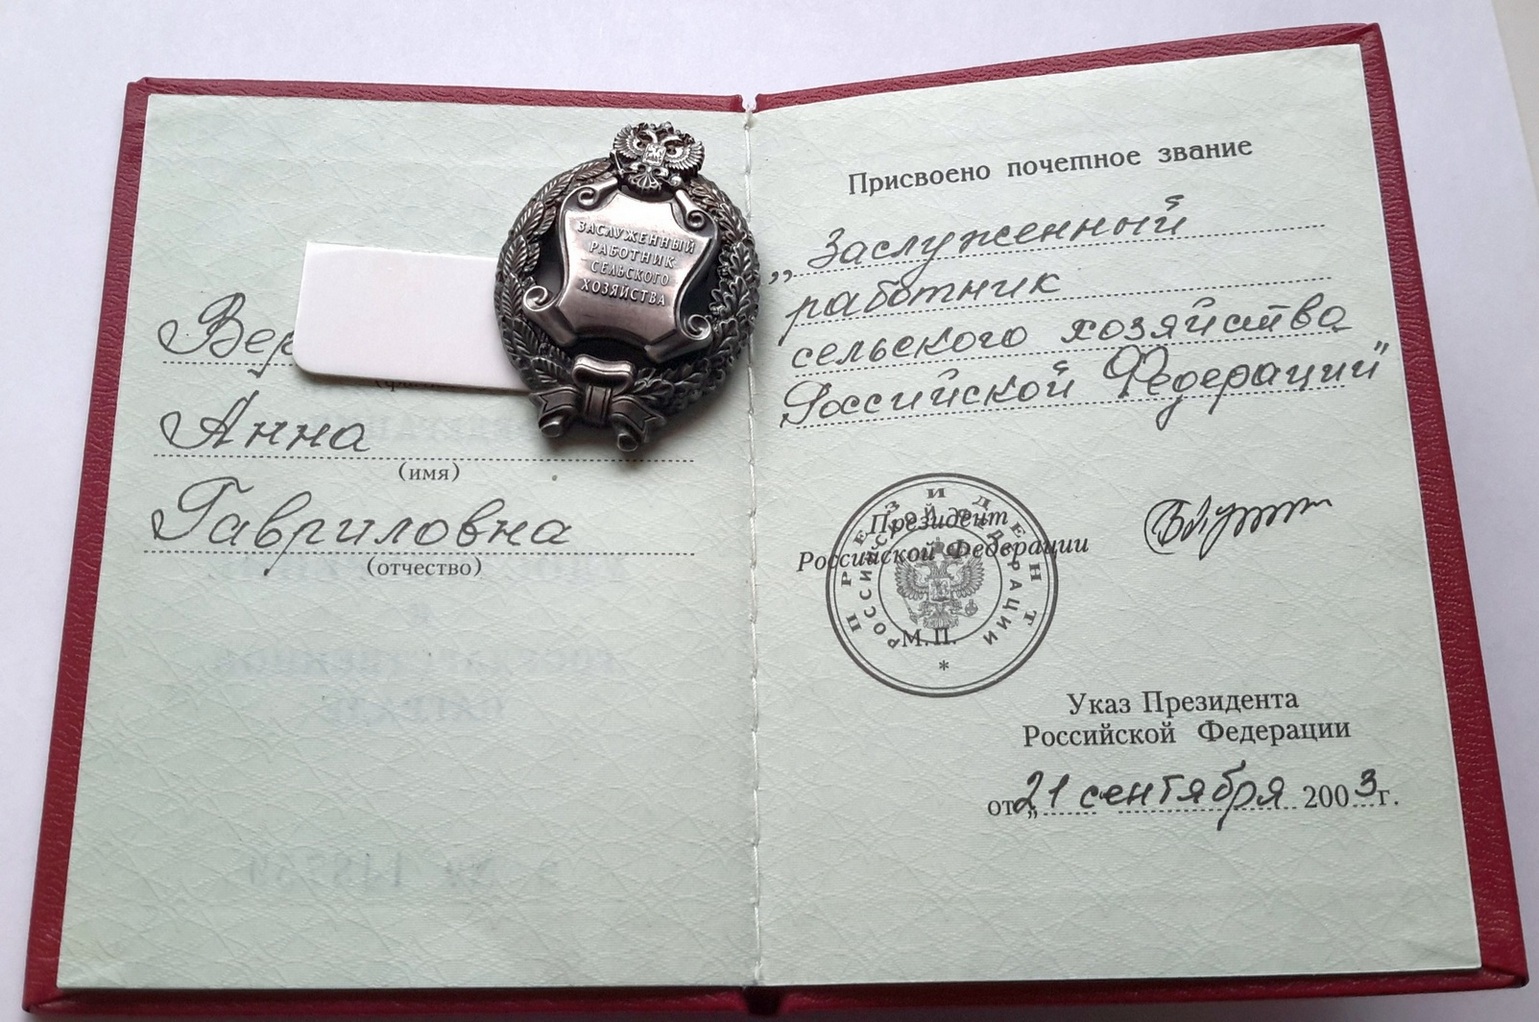 Вер
Анна
(имя)
Гавриловна
(отчество)
ЗАСЛУЖЕННЫЙ
РАБОТНИК
СЕЛЬСКОГО
ХОЗЯЙСТВА
Присвоено почетное звание
„Заслуженный
работник
сельского хозяйства
Российской Федерации"
Президент
Российской Федерации
ПРЕЗИДЕНТ
РОССИЙСКОЙ ФЕДЕРАЦИИ
М.П.
*
Указ Президента
Российской Федерации
от „21 сентября 2003 г.